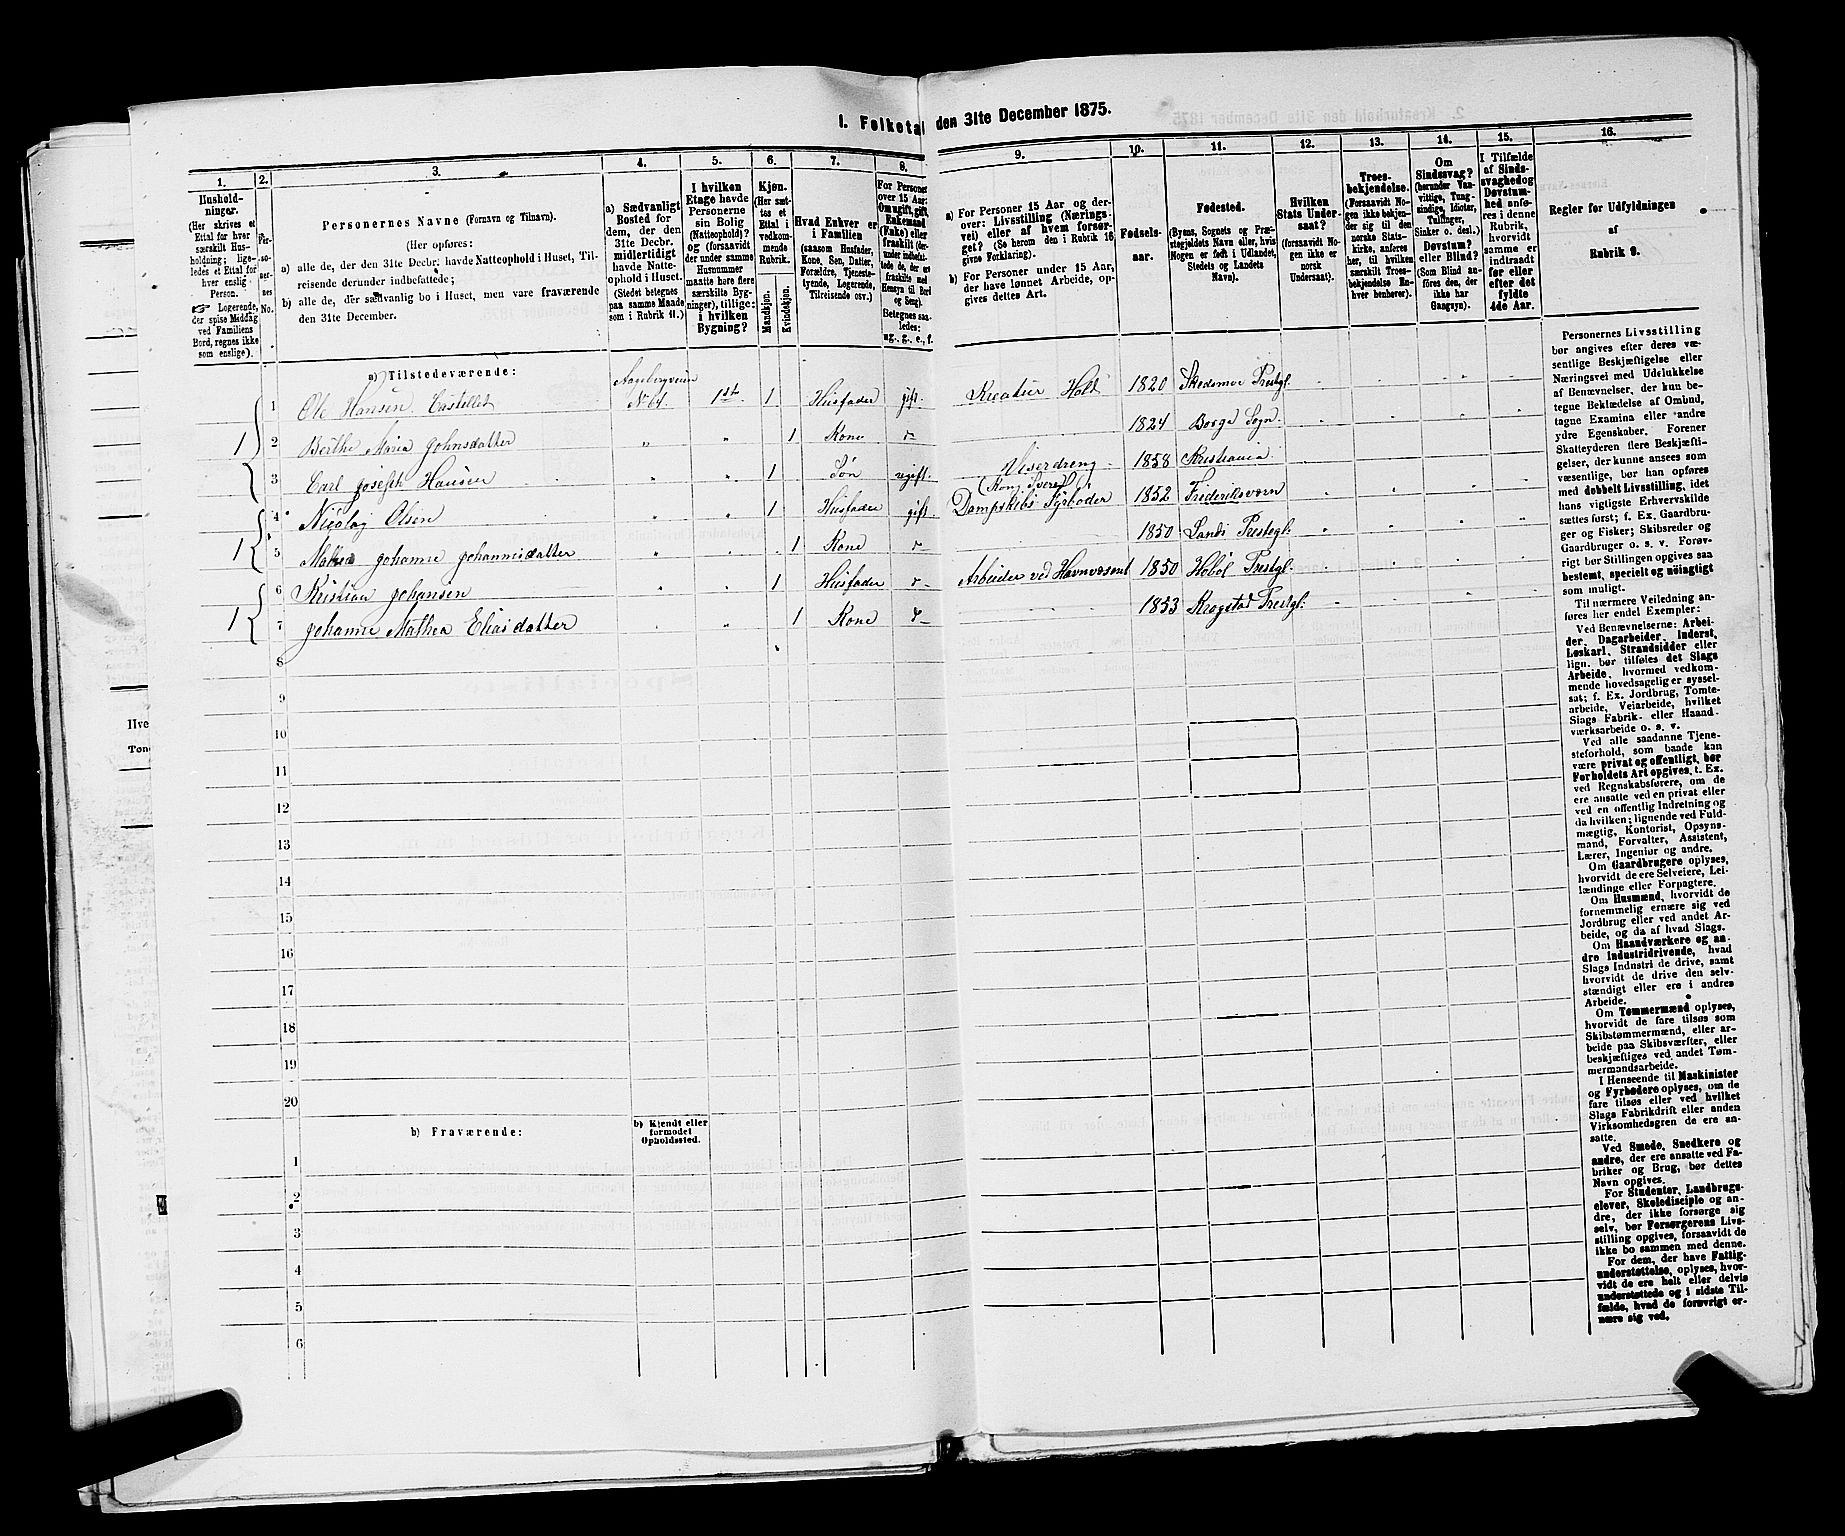 I. Folketal den 31te December 1875.
1. 2. 3. 4. 5. 6. 7. 8. 9. 10. 11. 12. 13. 14. 15. 16.
Hushold-
ninger.
(Her skrives et
Ettal for hver
særskilt Hus-
holdning; lige-
ledes et Ettal for
hver enslig
Person.
Logerende,
der spise Middag
ved Familiens
Bord, regnes ikke
som enslige).
Per-
so-
ner-
nes
No.
Personernes Navne (Fornavn og Tilnavn).
(Her opføres:
a) alle de, der den 31te Decbr. havde Natteophold i Huset, Til-
reisende derunder indbefattede;
b) alle de, der sædvanlig bo i Huset, men vare fraværende
den 31te December.
a) Sædvanligt
Bosted for
dem, der den
31te Decbr.
midlertidigt
havde Natte-
ophold i Huset.
(Stedet betegnes
paa samme Maade
som i Rubrik 11.)
I hvilken
Etage havde
Personerne
sin Bolig
(Natteophold)?
og (forsaavidt
der under samme
Husnummer
maatte høre flere
særskilte Byg-
ninger), tillige:
i hvilken
Bygning?
Kjøn.
(Her sæt-
tes et
Ettal i
vedkom-
mende
Rubrik.
Mandkjøn.
Kvindekjøn.
Hvad Enhver er
i Familien
(saasom Husfader,
Kone, Søn, Datter,
Forældre, Tjeneste-
tyende, Logerende,
Tilreisende osv.)
For Personer
over 15 Aar:
Om ugift, gift,
Enkemand
(Enke) eller
fraskilt (der-
under indbefat-
tede de, der ere
fraskilte med
Hensyn til Bord
og Seng).
Betegnes saa-
ledes:
ug., g., e., f.
a) For Personer 15 Aar og der-
over: Livsstilling (Nærings-
vei) eller af hvem forsør-
get? (Se herom den i Rubrik 16
givne Forklaring).
b) For Personer under 15 Aar,
der have lønnet Arbeide, op-
gives dettes Art.
Fødsels-
aar.
Fødested.
(Byens, Sognets og Præ-
stegjeldets Navn eller, hvis
Nogen er født i Udlandet,
Stedets og Landets
Navn).
Hvilken
Stats Under-
saat?
(forsaavidt No-
gen ikke er
norsk
Undersaat).
Troes-
bekjendelse.
(Forsaavidt No-
gen ikke bekjen-
der sig til den
norske Stats-
kirke, anføres
her, til hvilken
særskilt Troes-
bekjendelse En-
hver henhører).
Om
Sindssvag?
(herunder Van-
vittige, Tung-
sindige, Idioter,
Tullinger,
Sinker o. desl.)
Døvstum?
eller Blind?
(Som Blind an-
føres den, der
ikke har
Gangsyn).
I Tilfælde
af Sinds-
svaghed og
Døvstum-
hed anfø-
res i denne
Rubrik,
hvorvidt
samme er
indtraadt
før eller
efter det
fyldte
4de Aar.
Regler for Udfyldningen
af
Rubrik 9.
a) Tilstedeværende:
1 1 Ole Hansen Castellet Aagebergveien No 61. 1ste 1 Husfader gift. Kreatur Hold 1820 Skedsmoe Prestgl.
2 Berthe Maria Johnsdatter " " 1 Kone 1824 Borge Sogn.
3 Carl Josefth Hansen " " 1 Søn ugift. Viserdreng 1858 Kristiania
1 4 Nicolaj Olsen " " 1 Husfader gift. (Kong Svere) Dampskibs Fyrbøder 1852 Frederiksværn
5 Mathea Johanne Johannisdatter " " 1 Kone 1850 Lands Prestegl.
1 6 Kristian Johansen 1 Husfader Arbeider ved Havnvæsent 1850 Hobøl Prestgl.
7 Johanne Mathea Eliasdatter " 1 Kone 1853 Krogstad Prestgl.
8
9
10
11
12
13
14
15
16
17
18
19
20
b) Fraværende:
b) Kjendt eller
formodet
Opholdssted.
1
2
3
4
5
6
Personernes Livsstilling
bør angives efter deres væ-
sentlige Beskjæftigelse eller
Næringsvei med Udelukkelse
af Benævnelser, der kun be-
tegne Beklædelse af Ombud,
tagne Examina eller andre
ydre Egenskaber. Forener
Skatteyderen flere Beskjæfti-
gelser, der kunne ansees som
væsentlige, bør han opføres
med dobbelt Livsstilling, idet
hans vigtigste Erhvervskilde
sættes først; f. Ex. Gaardbru-
ger og Fisker; Skibsreder og
Gaardbruger o. s. v. Forøv-
rigt bør Stillingen opgives saa
bestemt, specielt og nöiagtigt
som muligt.
Til nærmere Veiledning an-
føres her endel Exempler:
Ved Benævnelserne: Arbei-
der, Dagarbeider, Inderst,
Løskarl, Strandsidder eller
lign. bør tilføies det Slags
Arbeide, hvormed vedkom-
mende hovedsagelig er syssel-
sat; f. Ex. Jordbrug, Tomte-
arbeide, Veiarbeide, hvilket
Slags Fabrik- eller Haand-
værksarbeide o. s. v.
Ved alle saadanne Tjene-
steforhold, som baade kan
være privat og offentligt, bør
Forholdets Art opgives, t. Ex.
ved Regnskabsførere, om de
ere ansatte ved en privat eller
ved en offentlig Indretning og
da hvilken; lignende ved Fuld-
mægtig, Kontorist, Opsyns-
mand, Forvalter, Assistent,
Lærer, Ingeniør og andre.
Om Gaardbrugere oplyses,
hvorvidt de ere Selveiere, Lei-
lændinge eller Forpagtere.
Om Husmænd, hvorvidt de
fornemmelig ernære sig ved
Jordbrug eller ved andet Ar-
beide, og da af hvad Slags.
Om Haandværkere og an-
dre Industridrivende, hvad
Slags Industri de drive, samt
hvorvidt de drive den selv-
stændigt eller ere i andres
Arbeide.
Om Tømmermænd oplyses,
hvorvidt de fare tilsøs som
Skibstømmermænd, eller ar-
beide paa Skibsværfter, eller
beskjæftiges ved andet Tøm-
mermandsarbeide.
I Henseende til Maskinister
og Fyrbødere oplyses, om de
fare tilsøs eller ved hvilket
Slags Fabrikdrift eller anden
Virksomhedsgren de ere an-
satte.
Ved Smede, Snedkere og
andre, der ere ansatte ved Fa-
briker og Brug, bør dettes
Navn opgives.
For Studenter, Landbrugs-
elever, Skoledisciple og an-
dre, der ikke forsørge sig
selv, bør Forsørgerens Livs-
stilling opgives, forsaavidt de
ikke bo sammen med denne.
For dem, der have Fattig-
understøttelse, oplyses, hvor-
vidt de ere helt eller delvis
understøttede og i sidste Til-
fælde, hvad de forøvrigt er-
nære sig ved.